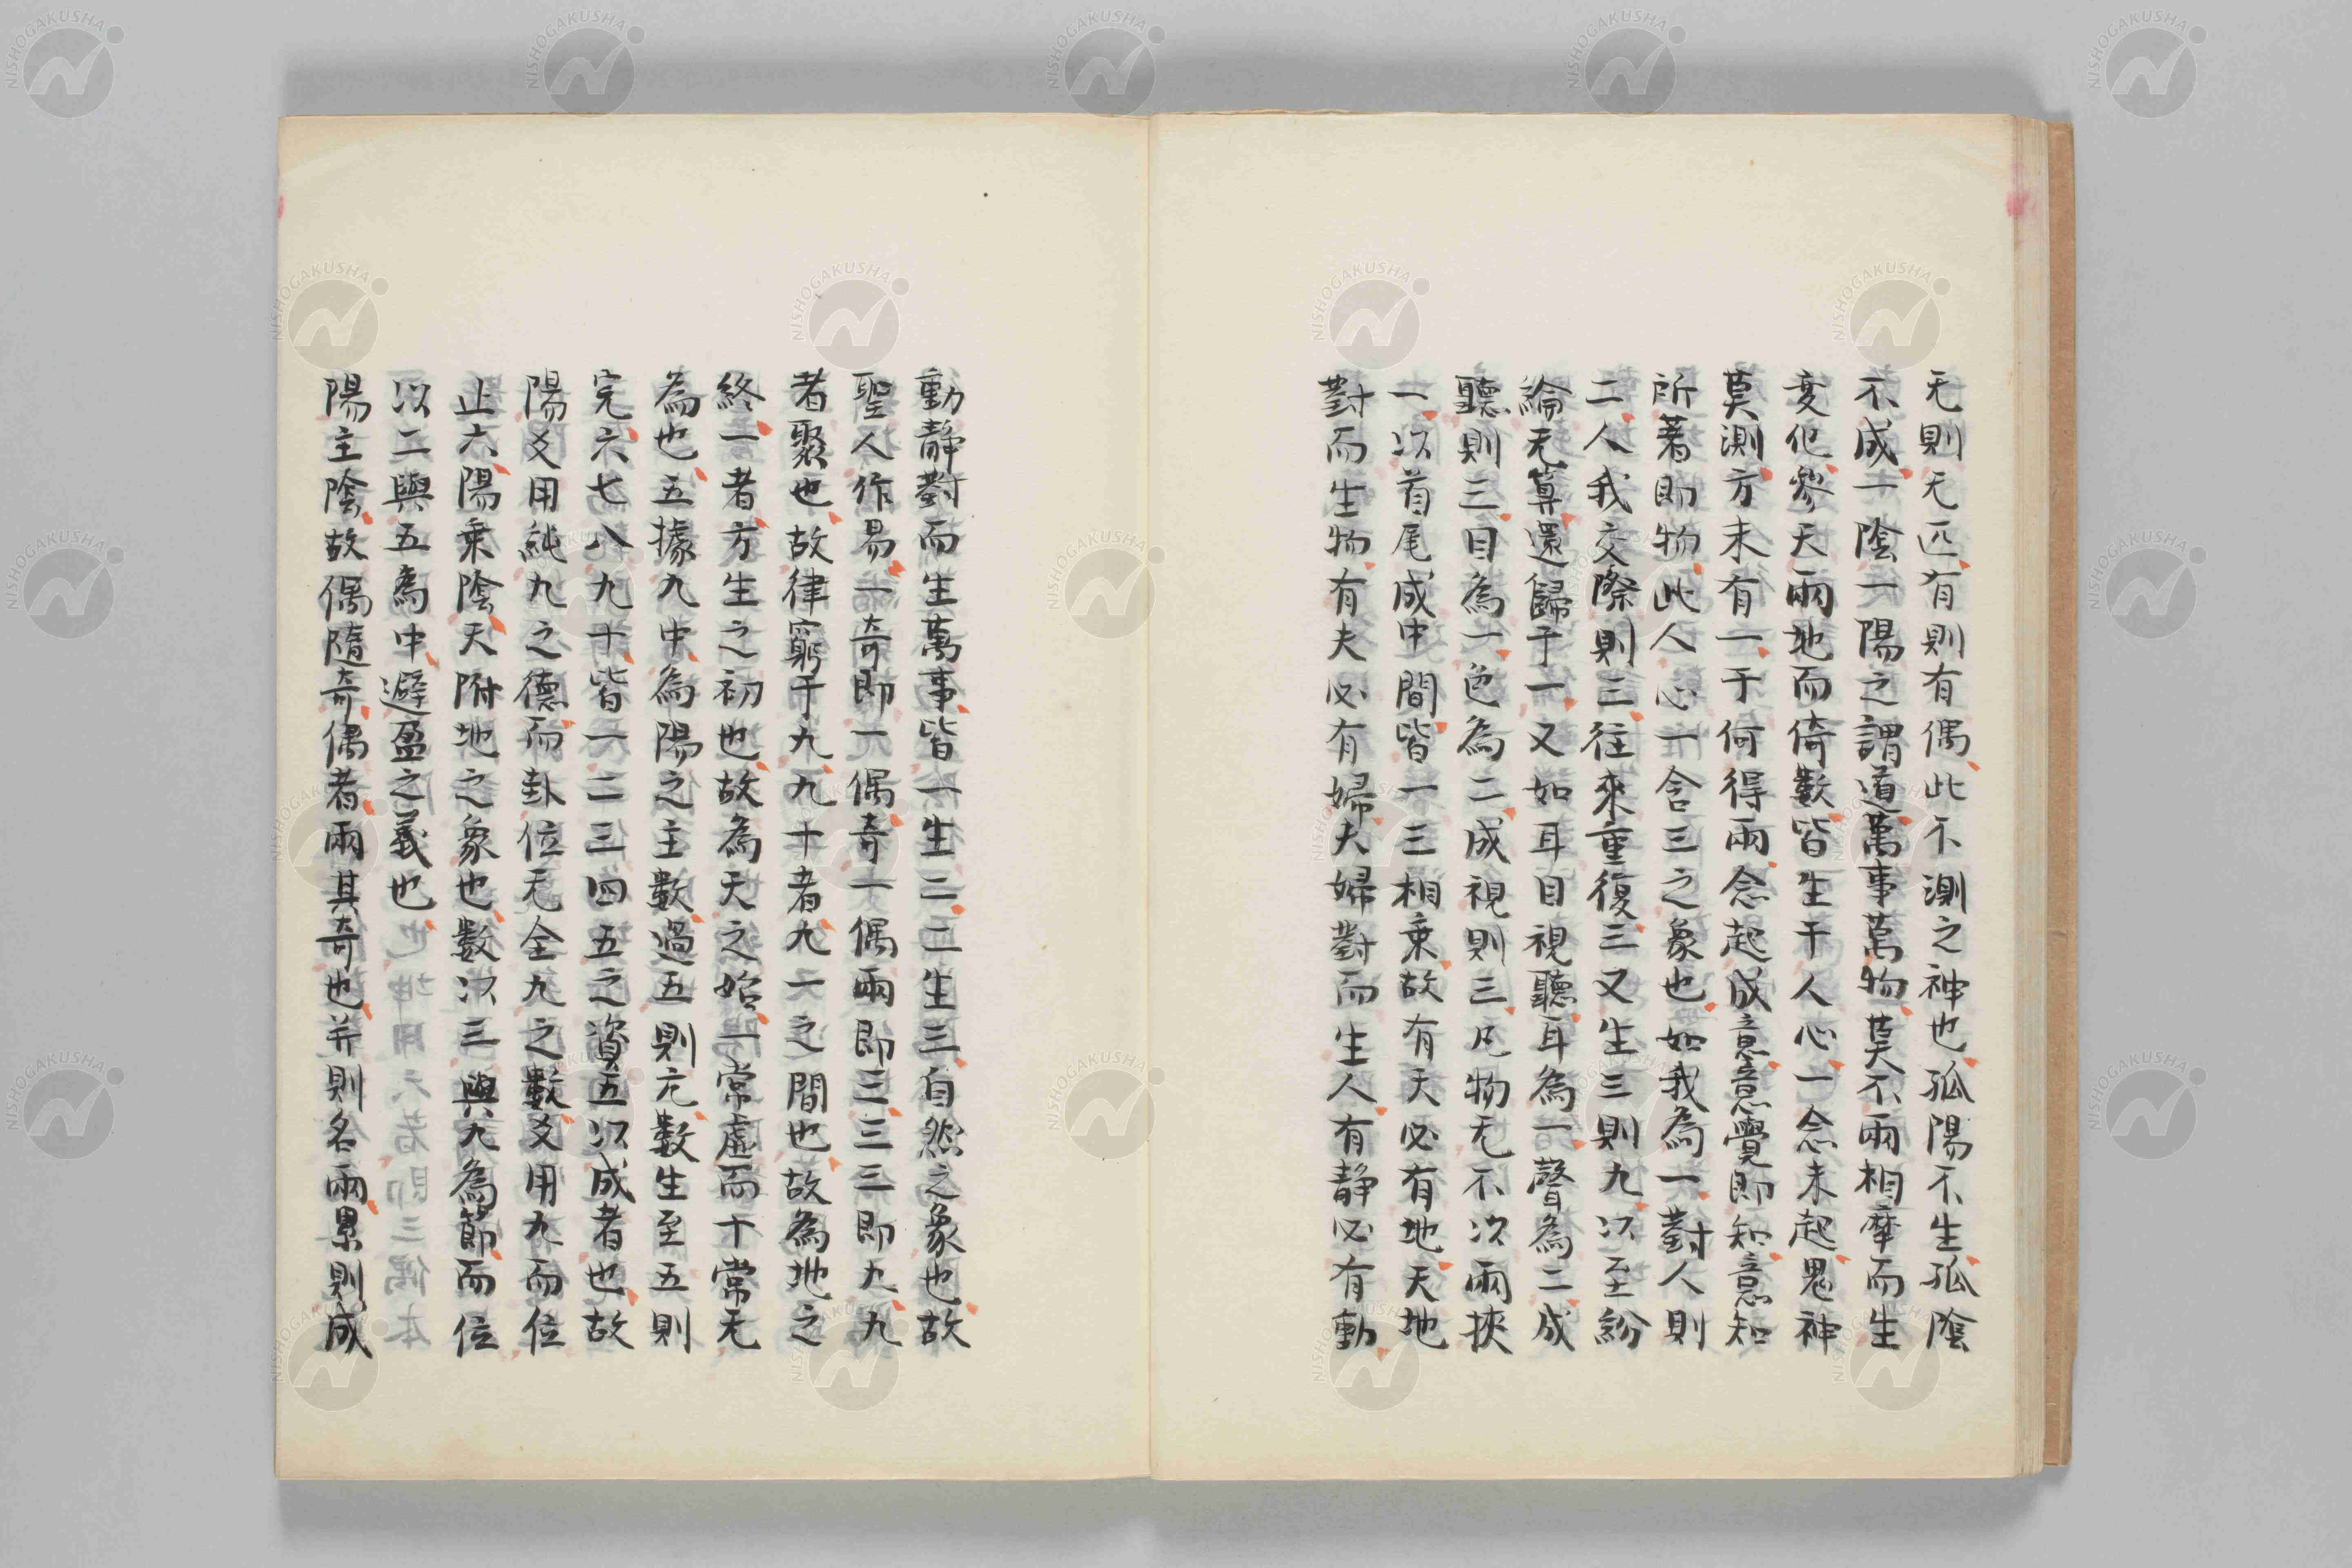 无則无匹有則有偶此不測之神也孤陽不生孤陰
不成一陰一陽之謂道萬事萬物莫不兩相摩而生
変化參天兩地而倚數皆生于人心一念未起鬼神
莫測方未有一于何得兩念起成意意覺即知意知
所著即物此人心一含三之象也如我為一對人則
二人我交際則三往來重復三又生三則九以至紛
綸无算還歸于一又如耳目視聽耳為一聲為二成
聽則三目為一色為二成視則三凡物无不以兩挾
一以首尾成中間皆一三相乗故有天必有地天地
對而生物有夫必有婦夫婦對而生人有静必有動
動静對而生萬事皆一生二二生三自然之象也故
聖人作易一奇即一偶奇一偶兩即三三三即九九
者聚也故律窮于九九十者九一之間也故為地之
終一者方生之初也故為天之始一常虛而十常无
為也五據九中為陽之主數過五則亢數生至五則
完六七八九十皆一二三四五之資五以成者也故
陽爻用純九之德而卦位无全九之數爻用九而位
止六陽乗陰天附地之象也數以三與九為節而位
以二與五為中避盈之義也
陽主陰故偶隨奇偶者兩其奇也并則名兩累則成
NISHOGAKUSHA